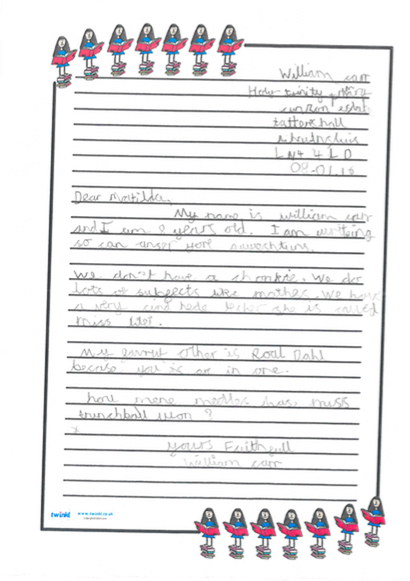 William carr
Holy trinity
tattershall
LN4 4LD
09.01.18
Dear Matilda,
My name is william carr
and I am 8 years old. I am writing
so can
We don't have a chonkie. We do
lots of subjects like mathes. We have
a very cind hede techer she is called
miss
My favrout other is Roal Dahl
becase you is or in one.
how mene medles has miss
trunchball won?
yours Faithfull
William carr
twinkl www.twinkl.co.uk